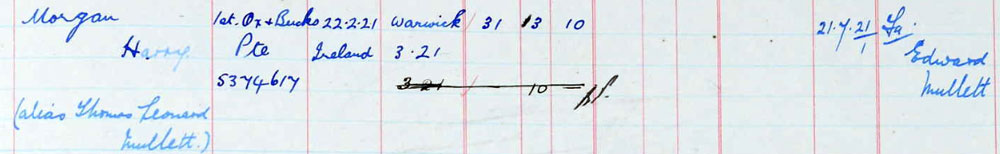 Morgan 1st. Ox & Bucks 22.2.21 Warwick 31 13 10 21.7.21 Fa.
Harry. Pte Ireland 3.21 1 Edward
5374617 3 21 10 Mullett
(alias Thomas Leonard
Mullett.)